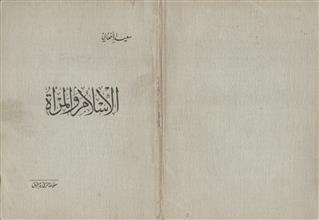 سعيد الأفغاني
الإسلام والمرأة